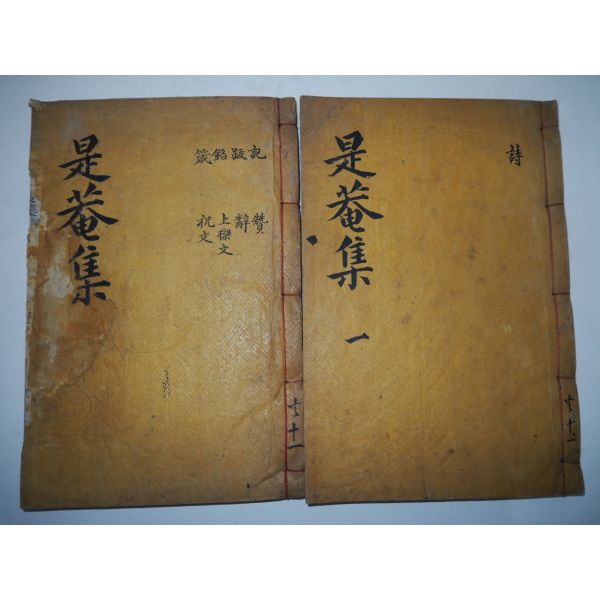 是菴集
記跋銘箴
贊辭上樑文祝文
共十一
是菴集
一
詩
共十一